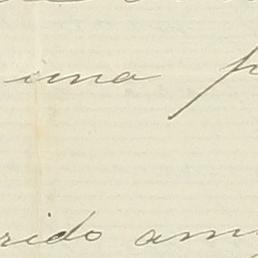 una p
rido am